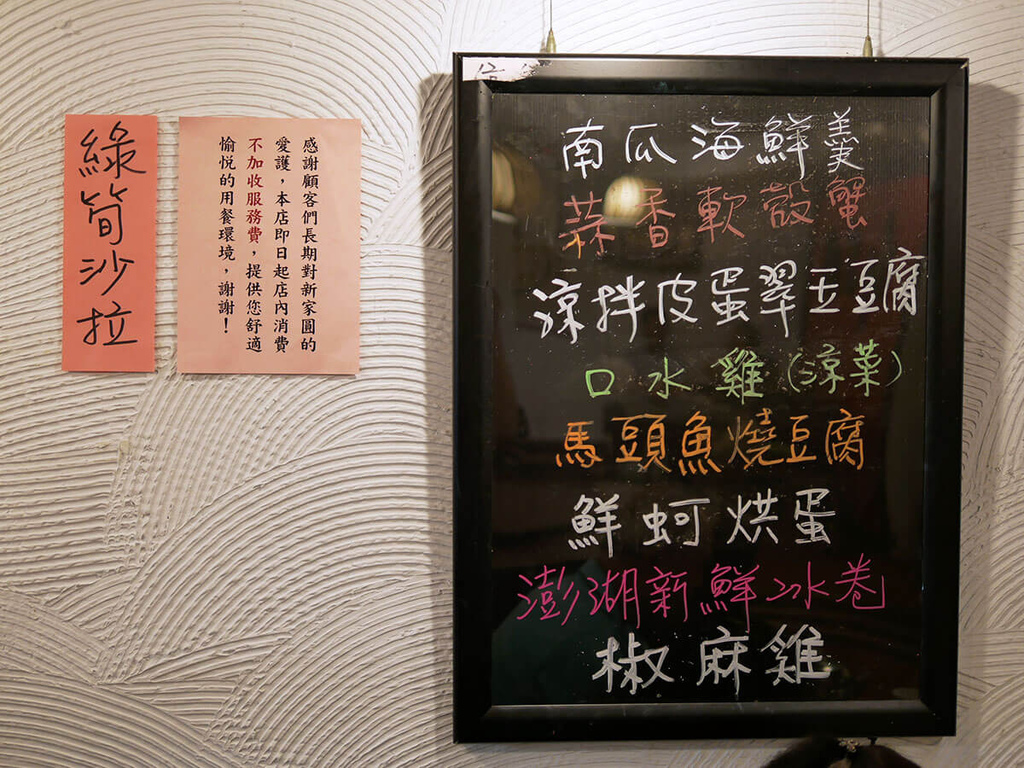 綠筍沙拉
感謝顧客們長期對新家園的
愛護，本店即日起店內消費
不加收服務費，提供您舒適
愉悅的用餐環境，謝謝！
南瓜海鮮羹
蒜香軟殼蟹
涼拌皮蛋翠玉豆腐
口水雞(涼菜)
馬頭魚燒豆腐
鮮蚵烘蛋
澎湖新鮮冰卷
椒麻雞